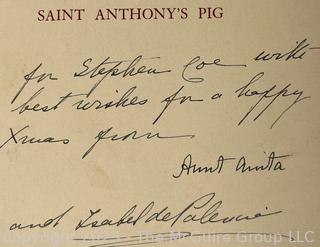 SAINT ANTHONY'S PIG
for Stephen Coe with
best wishes for a happy
Xmas from
Aunt Anita
and Isabel de Palencia